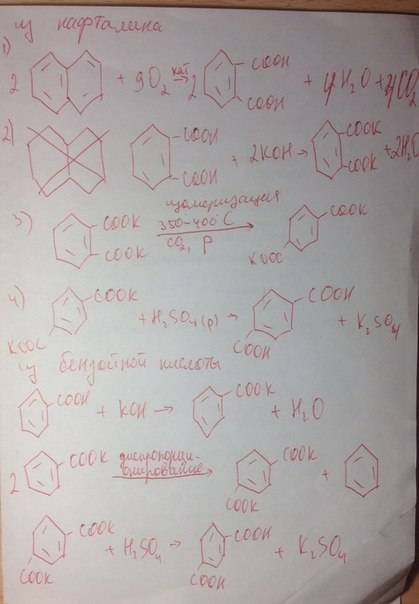 из нафталина
1)
2 + 9O₂ кат → 2 COOH COOH + 4H₂O + 4CO₂
2) COOH COOH + 2KOH → COOK COOK + 2H₂O
3) COOK COOK изомеризация 350-400°C CO₂, p → COOK KOOC
4) COOK KOOC + H₂SO₄(p) → COOH COOH + K₂SO₄
из бензойной кислоты
COOH + KOH → COOK + H₂O
2 COOK диспропорци-онирование → COOK COOK +
COOK COOK + H₂SO₄ → COOH COOH + K₂SO₄